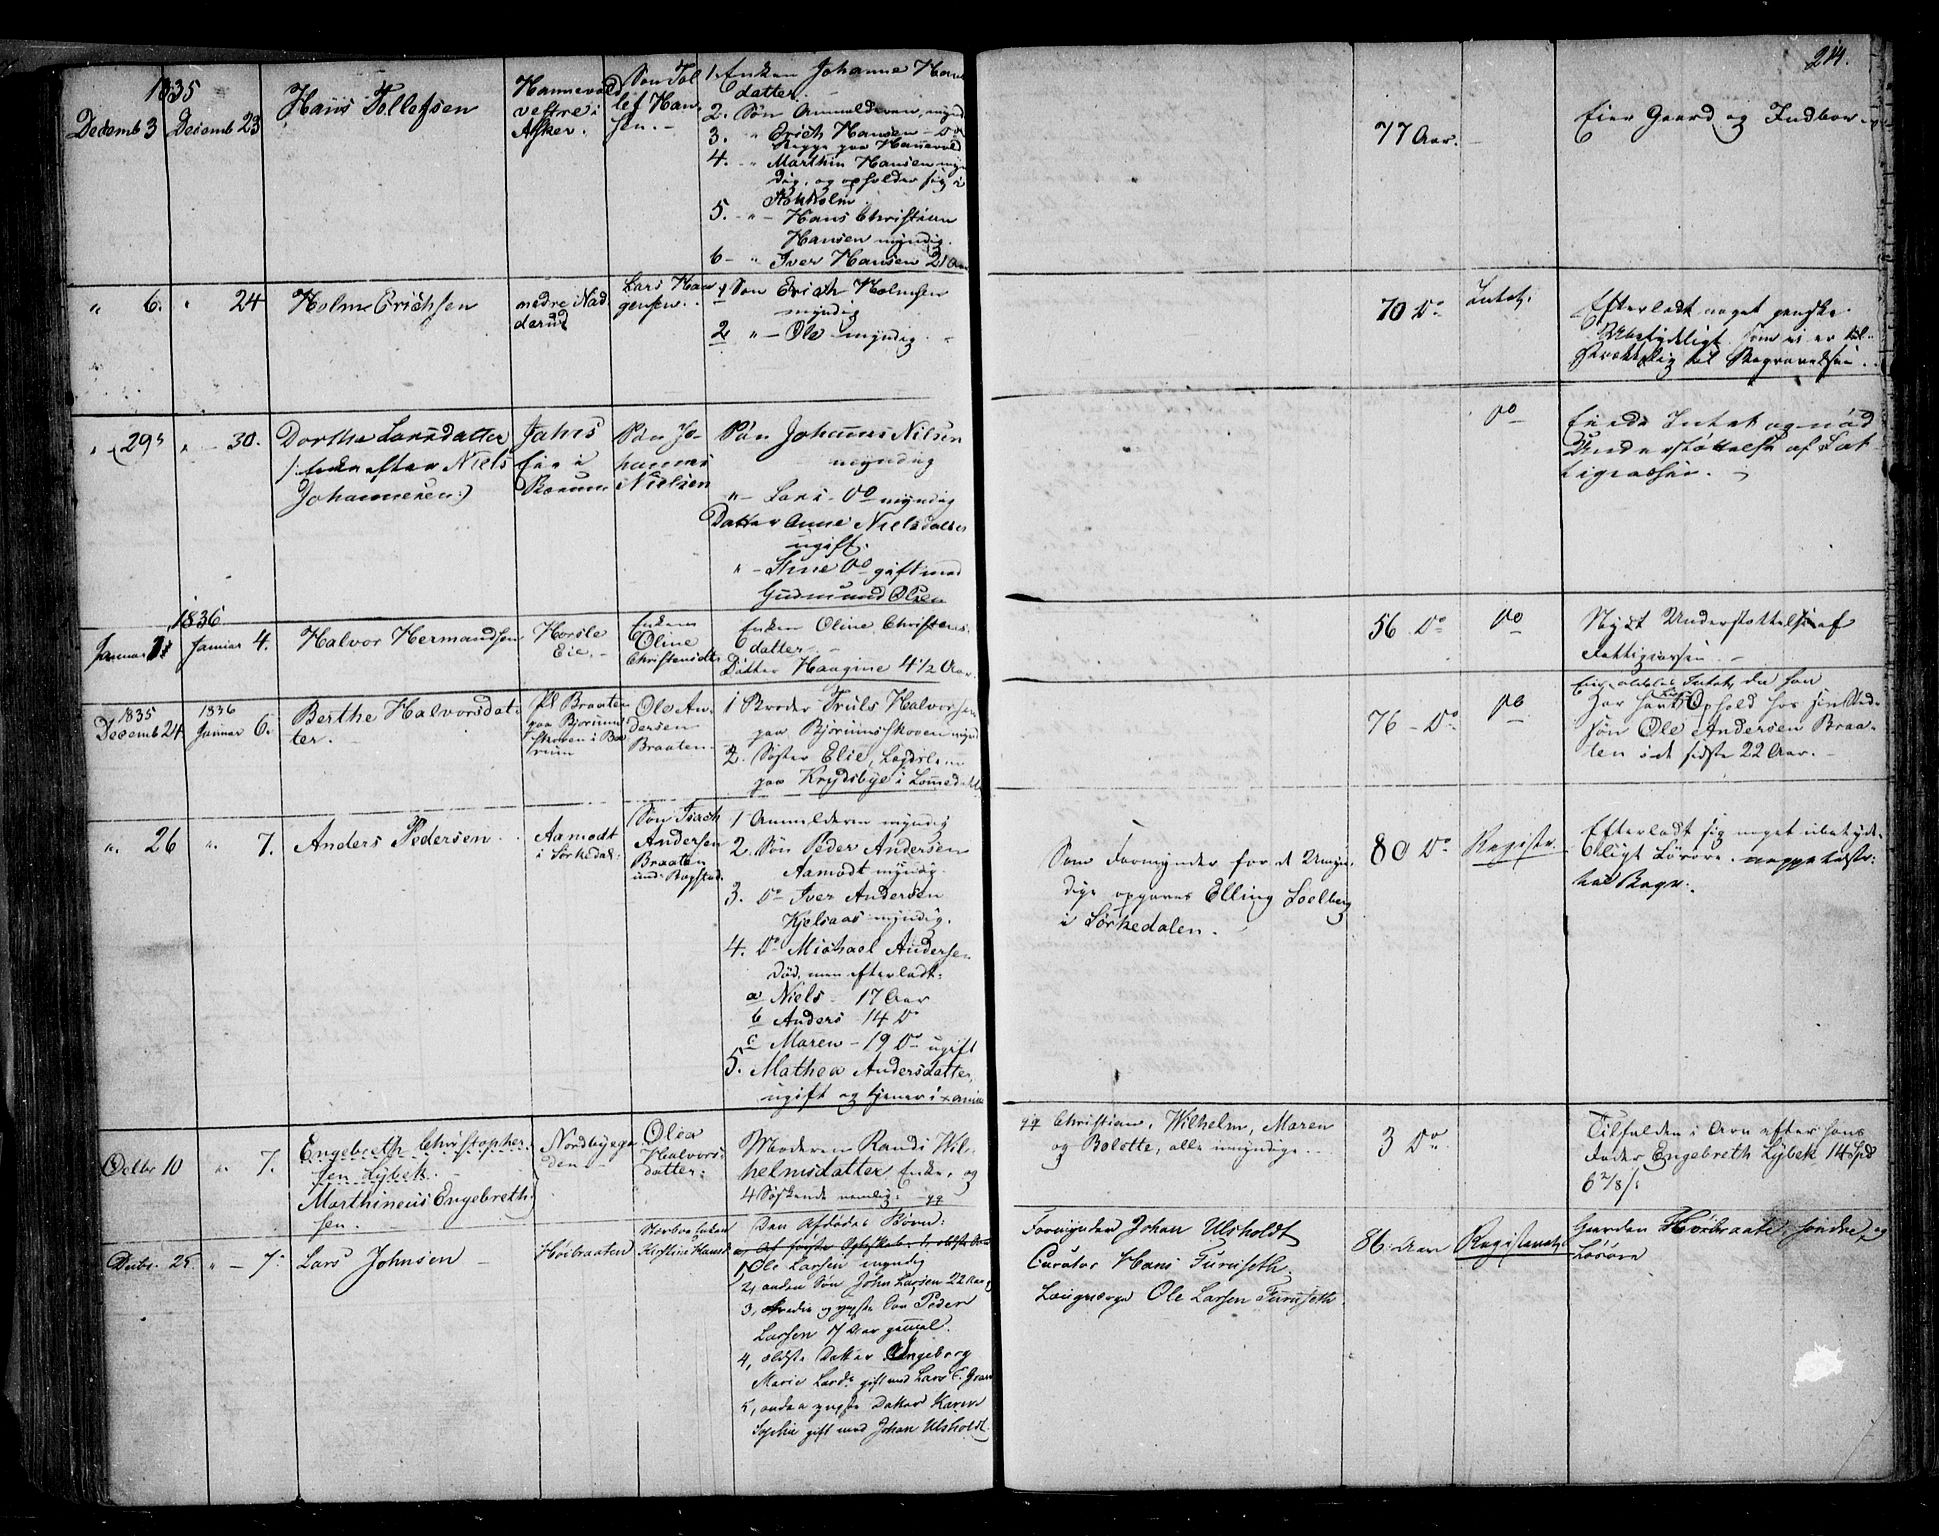 214.
1835
Decemb 3
Decemb 23
Hans Tollefsen
Hannevold
vestre i
Asker.
Søn Tol
lef Han
sen. -
1. Enken Johanne Hans
datter.
2. Søn Anmelderen, mynd
3. " Erich Hansen - Do
Begge paa Hannevold
4. - " Marthin Hansen myn
dig, og opholder sig i
Stokholm
5. - " - Hans Christian
Hansen myndig.
6 - " Iver Hansen 21 Aar
77 Aar.
Eier Gaard og Indboe
" 6.
" 24
Holm Erichsen
nedre Nad
derud
Lars Haa
gensen.
1 Søn Erich Holmsen
myndig
2 " - Ole myndig.
70 Do
Intet.
Efterladt noget ganske
Ubetydeligt som ei er til-
strækkelig til Begravelsen.
" 29
" - 30.
Dorthe Larsdatter
/: Enke efter Niels
Johannesen :)
Jahrs
Eie i
Bærum
Søn Jo-
hannes
Nielsen
Søn Johannes Nilsen
myndig
" - Lars - Do myndig
Datter Anne Nielsdatter
ugift.
" - Stine Do gift med
Gudmund Olsen
Do
Eiede Intet og nød
Understøttelse af Fat-
tigcassen. -
1836
Januar 1
Januar 4.
Halvor Hermandsen
Horsle
Eie. -
Enken
Oline
Christensdtr
Enken Oline Christens-
datter -
Datter Haagine 4 1/2 Aar.
56 Do
Do
Nydt Understøttelse af
Fattigcassen -
1835
Decemb 24
1836
Januar 6.
Berthe Halvorsdat-
ter. -
Pl Braaten
paa Bjørums
skoven i Bæ
rum
Ole An-
dersen
Braaten
1 Broder Truls Halvorsen
paa Bjørumsskoven mynd
2. Søster Elie,
paa Krydsbye i Lomedalen
76 - Do
Do
Eiede aldeles Intet, da hun
har havt Ophold hos sin Sted-
søn Ole Andersen Braa-
ten i de sidste 22 Aar. -
" 26
" 7.
Anders Pedersen
Aamodt
i Sørkedal:
Søn Isach
Andersen
Braaten
under Bogstad.
1 Anmelderen myndig
2. Søn Peder Andersen
Aamodt myndig.
3. Do Iver Andersen
Kjelsaas myndig.
4. Do Michael Andersen
Død, men efterladt:
a Niels - 17 Aar
b Anders - 14 Do
c Maren - 19 Do ugift
5. Mathea Andersdatter,
ugift og tjener i
Som Formynder for de Umyn
dige opgaves Elling Solberg
i Sørkedalen.
80 Do
Registr.
Efterladt sig noget ubetyde-
ligt Løsøre.
Octbr 10
" 7.
Engebreth Christopher-
sen Lybek
Marthineus Engebreth
sen.
Nordbyega
den
Olea
Halvors-
datter:
Moderen Randi Wil-
helmsdatter Enke, og
4 Søskende nemlig:
Christian, Wilhelm, Maren
og Bolette, alle umyndige. -
3 Do
Tilfalden i Arv efter hans
Fader Engebreth Lybek 14 Spd
Decbr. 25.
" - 7.
Lars Johnsen
Høibraaten
Kirstine Hansd
Den Afdødes Børn:
1, Ole Larsen myndig
2, anden Søn John Larsen 22 Aar g
3, tredie og yngste Søn Peder
Larsen 17 Aar gammel.
4, ældste Datter Ingeborg
Marie Larsd. gift med Lars
5, anden yngste Datter Karen
Sophie gift med Johan Ulsholdt
Formynder Johan Ulsholdt
Curator Hans Furuseth.
Laugværge Ole Larsen Furuseth.
86. Aar
Registereret
Gaarden Høibraaten søndre, og
Løsøre